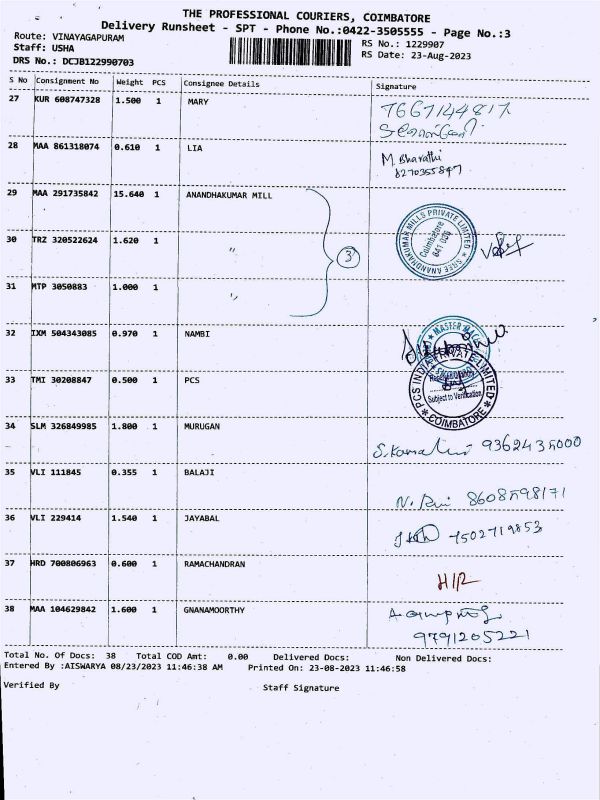 THE PROFESSIONAL COURIERS, COIMBATORE
Delivery Runsheet - SPT - Phone No.:0422-3505555 - Page No.:3
Route: VINAYAGAPURAM
Staff: USHA
DRS No.: DCJB122990703
RS No.: 1229907
RS Date: 23-Aug-2023
S No Consignment No Weight PCS Consignee Details Signature
27 KUR 608747328 1.500 1 MARY
7667144817
28 MAA 861318074 0.610 1 LIA
M. Bharathi
8270355847
29 MAA 291735842 15.640 1 ANANDHAKUMAR MILL
SREE ANANDHAKUMAR MILLS PRIVATE LIMITED
Coimbatore
30 TRZ 320522624 1.620 1 "
3
31 MTP 3050883 1.000 1 "
32 IXM 504343085 0.970 1 NAMBI
33 TMI 30208847 0.500 1 PCS
PCS INDIA PRIVATE LIMITED
Subject to Verification
COIMBATORE
34 SLM 326849985 1.800 1 MURUGAN
9362435000
35 VLI 111845 0.355 1 BALAJI
8608598171
36 VLI 229414 1.540 1 JAYABAL
7502719853
37 HRD 700806963 0.600 1 RAMACHANDRAN
38 MAA 104629842 1.600 1 GNANAMOORTHY
9791205221
Total No. Of Docs: 38 Total COD Amt: 0.00 Delivered Docs: Non Delivered Docs:
Entered By :AISWARYA 08/23/2023 11:46:38 AM Printed On: 23-08-2023 11:46:58
Verified By Staff Signature